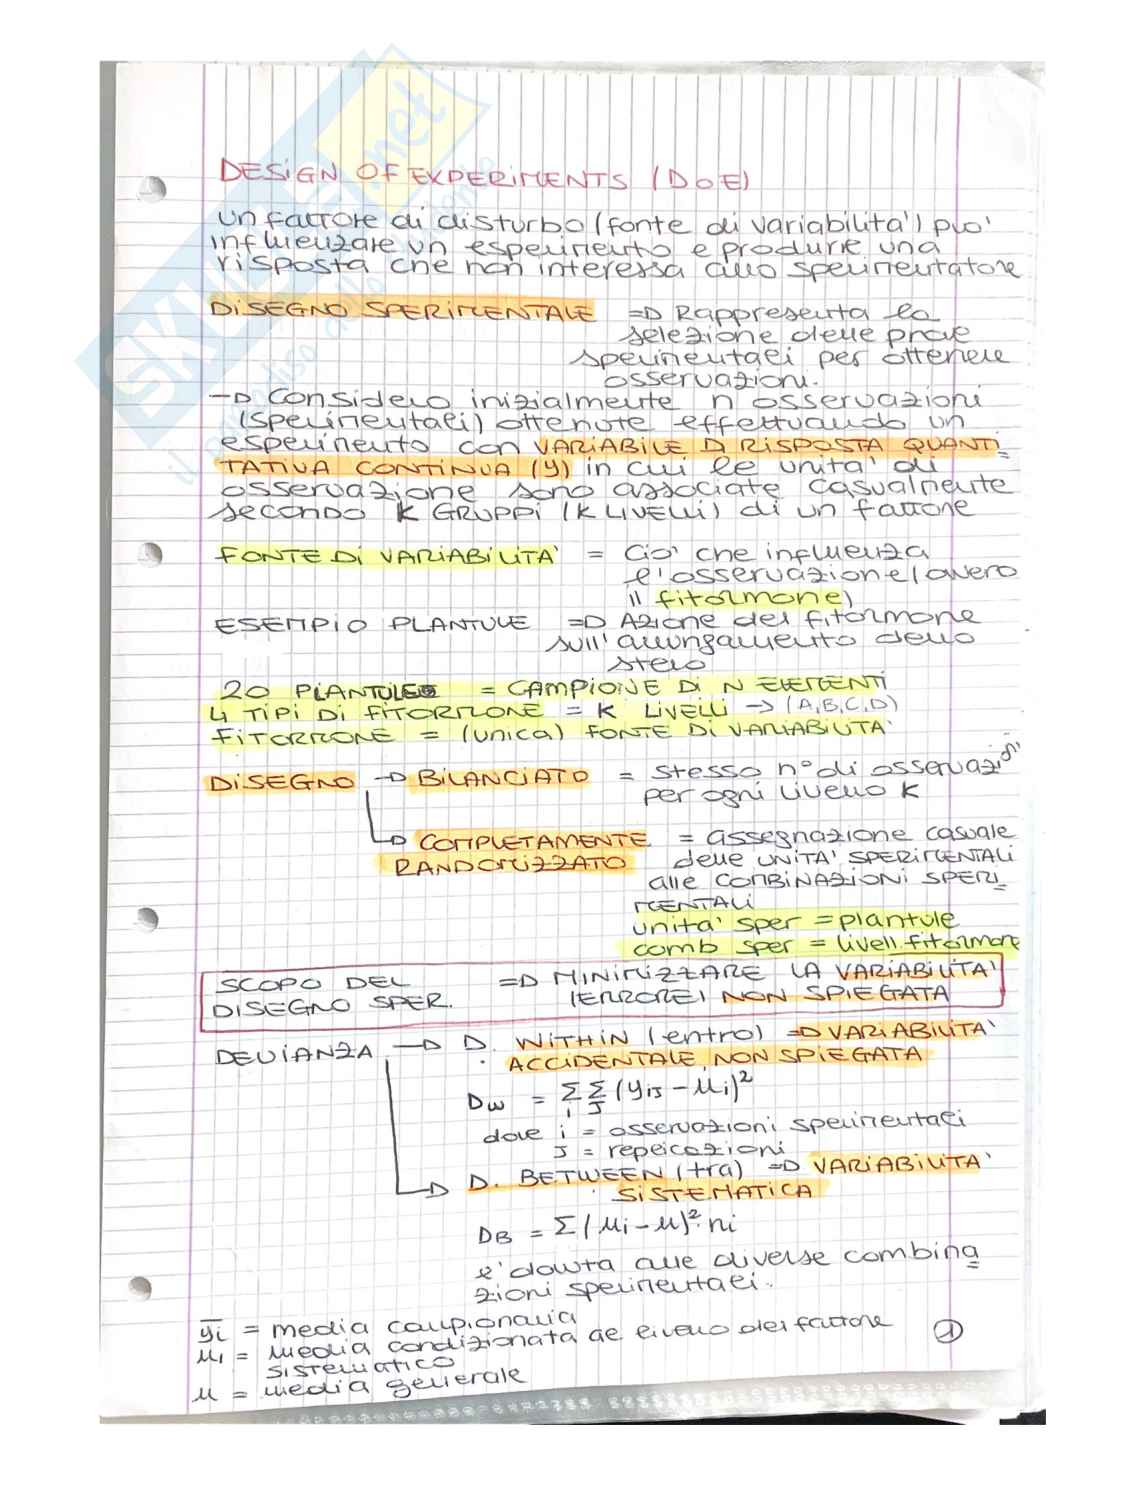 DESIGN OF EXPERIMENTS (DOE)
un fattore di disturbo (fonte di variabilita') puo'
influenzare un esperimento e produrre una
risposta che non interessa allo sperimentatore
DISEGNO SPERIMENTALE => Rappresenta la
selezione delle prove
sperimentali per ottenere
osservazioni.
-> Considero inizialmente n osservazioni
(sperimentali) ottenute effettuando un
esperimento con VARIABILE DI RISPOSTA QUANTI
TATIVA CONTINUA (y) in cui le unita' di
osservazione sono associate casualmente
secondo K GRUPPI (K LIVELLI) di un fattore
FONTE DI VARIABILITA' = Cio' che influenza
l'osservazione (ovvero
il fitormone)
ESEMPIO PLANTULE => Azione del fitormone
sull'allungamento dello
stelo
20 PLANTULE = CAMPIONE DI N ELEMENTI
4 TIPI DI FITORMONE = K LIVELLI -> (A,B,C,D)
FITORMONE = (unica) FONTE DI VARIABILITA'
DISEGNO -> BILANCIATO = stesso n° di osservazioni
per ogni livello K
-> COMPLETAMENTE = assegnazione casuale
RANDOMIZZATO delle UNITA' SPERIMENTALI
alle COMBINAZIONI SPERI
MENTALI
unita' sper = plantule
comb sper = livelli fitormone
SCOPO DEL => MINIMIZZARE LA VARIABILITA'
DISEGNO SPER. (ERRORE) NON SPIEGATA
DEVIANZA -> D. WITHIN (entro) => VARIABILITA'
ACCIDENTALE NON SPIEGATA
Dw = Σi Σj (yij - μi)²
dove i = osservazioni sperimentali
J = replicazioni
-> D. BETWEEN (tra) => VARIABILITA'
SISTEMATICA
DB = Σ (μi - μ)² ni
e' dovuta alle diverse combina
zioni sperimentali.
ȳi = media campionaria
μi = media condizionata al livello del fattore
sistematico
μ = media generale
1
SKUOLA.net
il paradiso dello studente